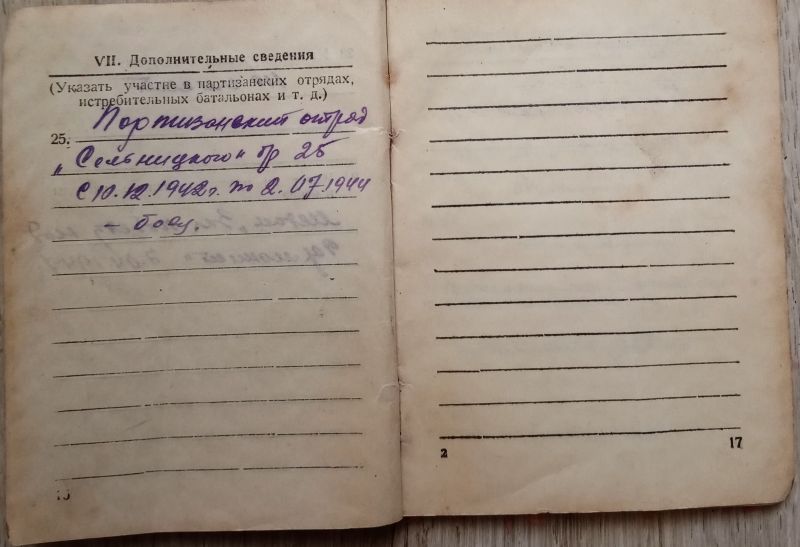 VII. Дополнительные сведения
(Указать участие в партизанских отрядах,
истребительных батальонах и т. д.)
25. Партизанский отряд
„Сельницкого" бр 25
с 10.12.1942г. по 2.07.1944
– боец.
2
17